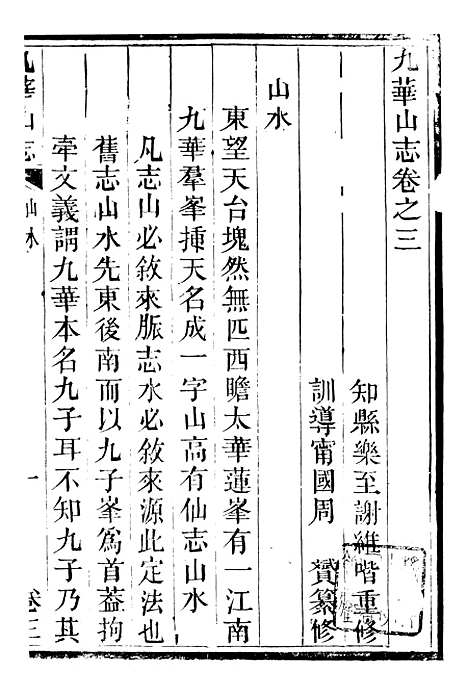 九華山志卷之三
知縣樂至謝維喈重修
訓導甯國周　贇纂修
山水
東望天台塊然無匹西瞻太華蓮峯有一江南
九華羣峯揷天名成一字山高有仙志山水
凡志山必敘來脈志水必敘來源此定法也
舊志山水先東後南而以九子峯爲首葢拘
牽文義謂九華本名九子耳不知九子乃其
九華山志
山水
一
卷三